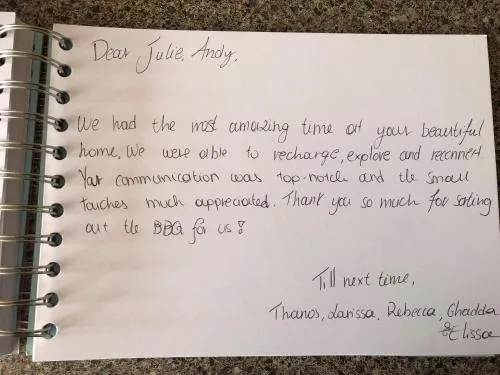 Dear Julie, Andy,
We had the most amazing time at your beautiful
home. We were able to recharge, explore and reconnect.
Your communication was top-notch and the small
touches much appreciated. Thank you so much for sorting
out the BBQ for us!
Till next time,
Thanos, Larissa, Rebecca, Ghadda
& Elissa